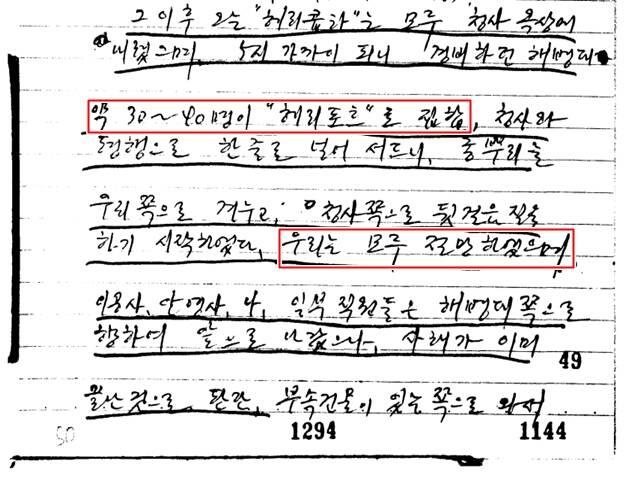 그 이후 오는 "헤리콥타"는 모두 청사 옥상에
내렸으며, 5시 가까이 되니 경비하던 해병대
약 30~40명이 "헤리포트"로 집합, 청사와
평행으로 한 줄로 널어 서드니, 총뿌리를
우리 쪽으로 겨누고, 청사쪽으로 뒷걸음질을
하기 시작하였다. 우리는 모두 절망하였으며
이용사, 안영사, 나, 일부 직원들은 해병대 쪽으로
향하여 앞으로 나갔으나, 사태가 이미
49
끝난 것으로, 판단, 부속건물이 있는 쪽으로 와서
50
1294
1144